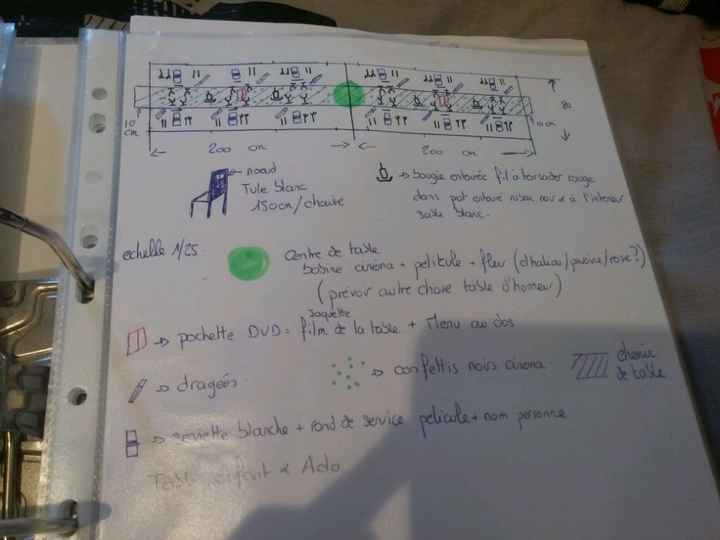 10 cm
200 cm
200 cm
10 cm
80
noeud
Tule blanc
150cm/chaise
bougie entourée fil à torsader rouge
dans pot entouré ruban noir à l'interieur
sable blanc.
echelle 1/25
Centre de table
bobine cinéma + pelicule + fleur (chateau/pivoine/rose?)
(prévoir autre chose table d'honneur)
jaquette
pochette DVD = film de la table + Menu au dos
dragées
confettis noirs cinema
chemin de table
serviette blanche + rond de service pelicule + nom personne
Table enfant & Ado